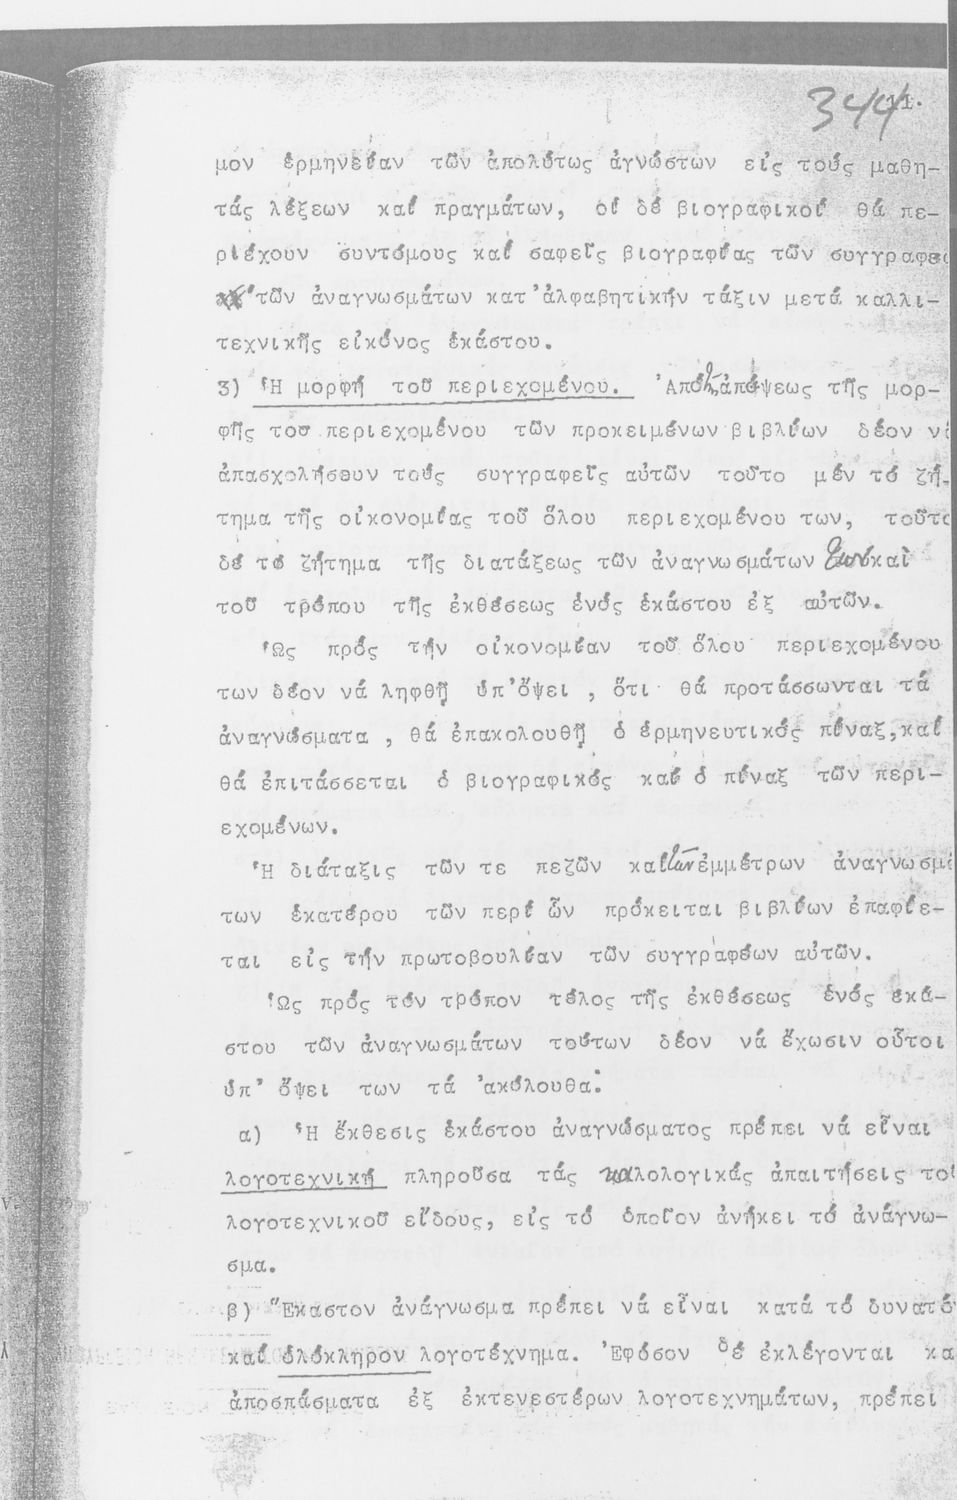 344 11.
μον ἑρμηνείαν τῶν ἀπολύτως ἀγνώστων εἰς τούς μαθη-
τάς λέξεων καί πραγμάτων, οἱ δέ βιογραφικοί θά πε-
ριέχουν συντόμους καί σαφεῖς βιογραφίας τῶν συγγραφέω
τῶν ἀναγνωσμάτων κατ'ἀλφαβητικήν τάξιν μετά καλλι-
τεχνικῆς εἰκόνος ἑκάστου.
3) Ἡ μορφή τοῦ περιεχομένου. Ἀπό ἀπόψεως τῆς μορ-
φῆς του περιεχομένου τῶν προκειμένων βιβλίων δέον νά
ἀπασχολήσουν τούς συγγραφεῖς αὐτῶν τοῦτο μέν τό ζή-
τημα τῆς οἰκονομίας τοῦ ὅλου περιεχομένου των, τοῦτο
δέ τό ζήτημα τῆς διατάξεως τῶν ἀναγνωσμάτων καὶ
τοῦ τρόπου τῆς ἐκθέσεως ἑνός ἑκάστου ἐξ αὐτῶν.
Ὡς πρός τήν οἰκονομίαν τοῦ ὅλου περιεχομένου
των δέον νά ληφθῇ ὑπ'ὄψει , ὅτι θά προτάσσωνται τά
ἀναγνώσματα , θά ἐπακολουθῇ ὁ ἑρμηνευτικός πίναξ,καί
θά ἐπιτάσσεται ὁ βιογραφικός καί ὁ πίναξ τῶν περι-
εχομένων.
Ἡ διάταξις τῶν τε πεζῶν καί τῶν ἐμμέτρων ἀναγνωσμά
των ἑκατέρου τῶν περί ὧν πρόκειται βιβλίων ἐπαφίε-
ται εἰς τήν πρωτοβουλίαν τῶν συγγραφέων αὐτῶν.
Ὡς πρός τόν τρόπον τέλος τῆς ἐκθέσεως ἑνός ἑκά-
στου τῶν ἀναγνωσμάτων τούτων δέον νά ἔχωσιν οὗτοι
ὑπ' ὄψει των τά ἀκόλουθα:
α) Ἡ ἔκθεσις ἑκάστου ἀναγνώσματος πρέπει νά εἶναι
λογοτεχνική πληροῦσα τάς καλολογικάς ἀπαιτήσεις τοῦ
λογοτεχνικοῦ εἴδους, εἰς τό ὁποῖον ἀνήκει τό ἀνάγνω-
σμα.
β) Ἕκαστον ἀνάγνωσμα πρέπει νά εἶναι κατά τό δυνατόν
καί ὁλόκληρον λογοτέχνημα. Ἐφόσον δέ ἐκλέγονται κα
ἀποσπάσματα ἐξ ἐκτενεστέρων λογοτεχνημάτων, πρέπει